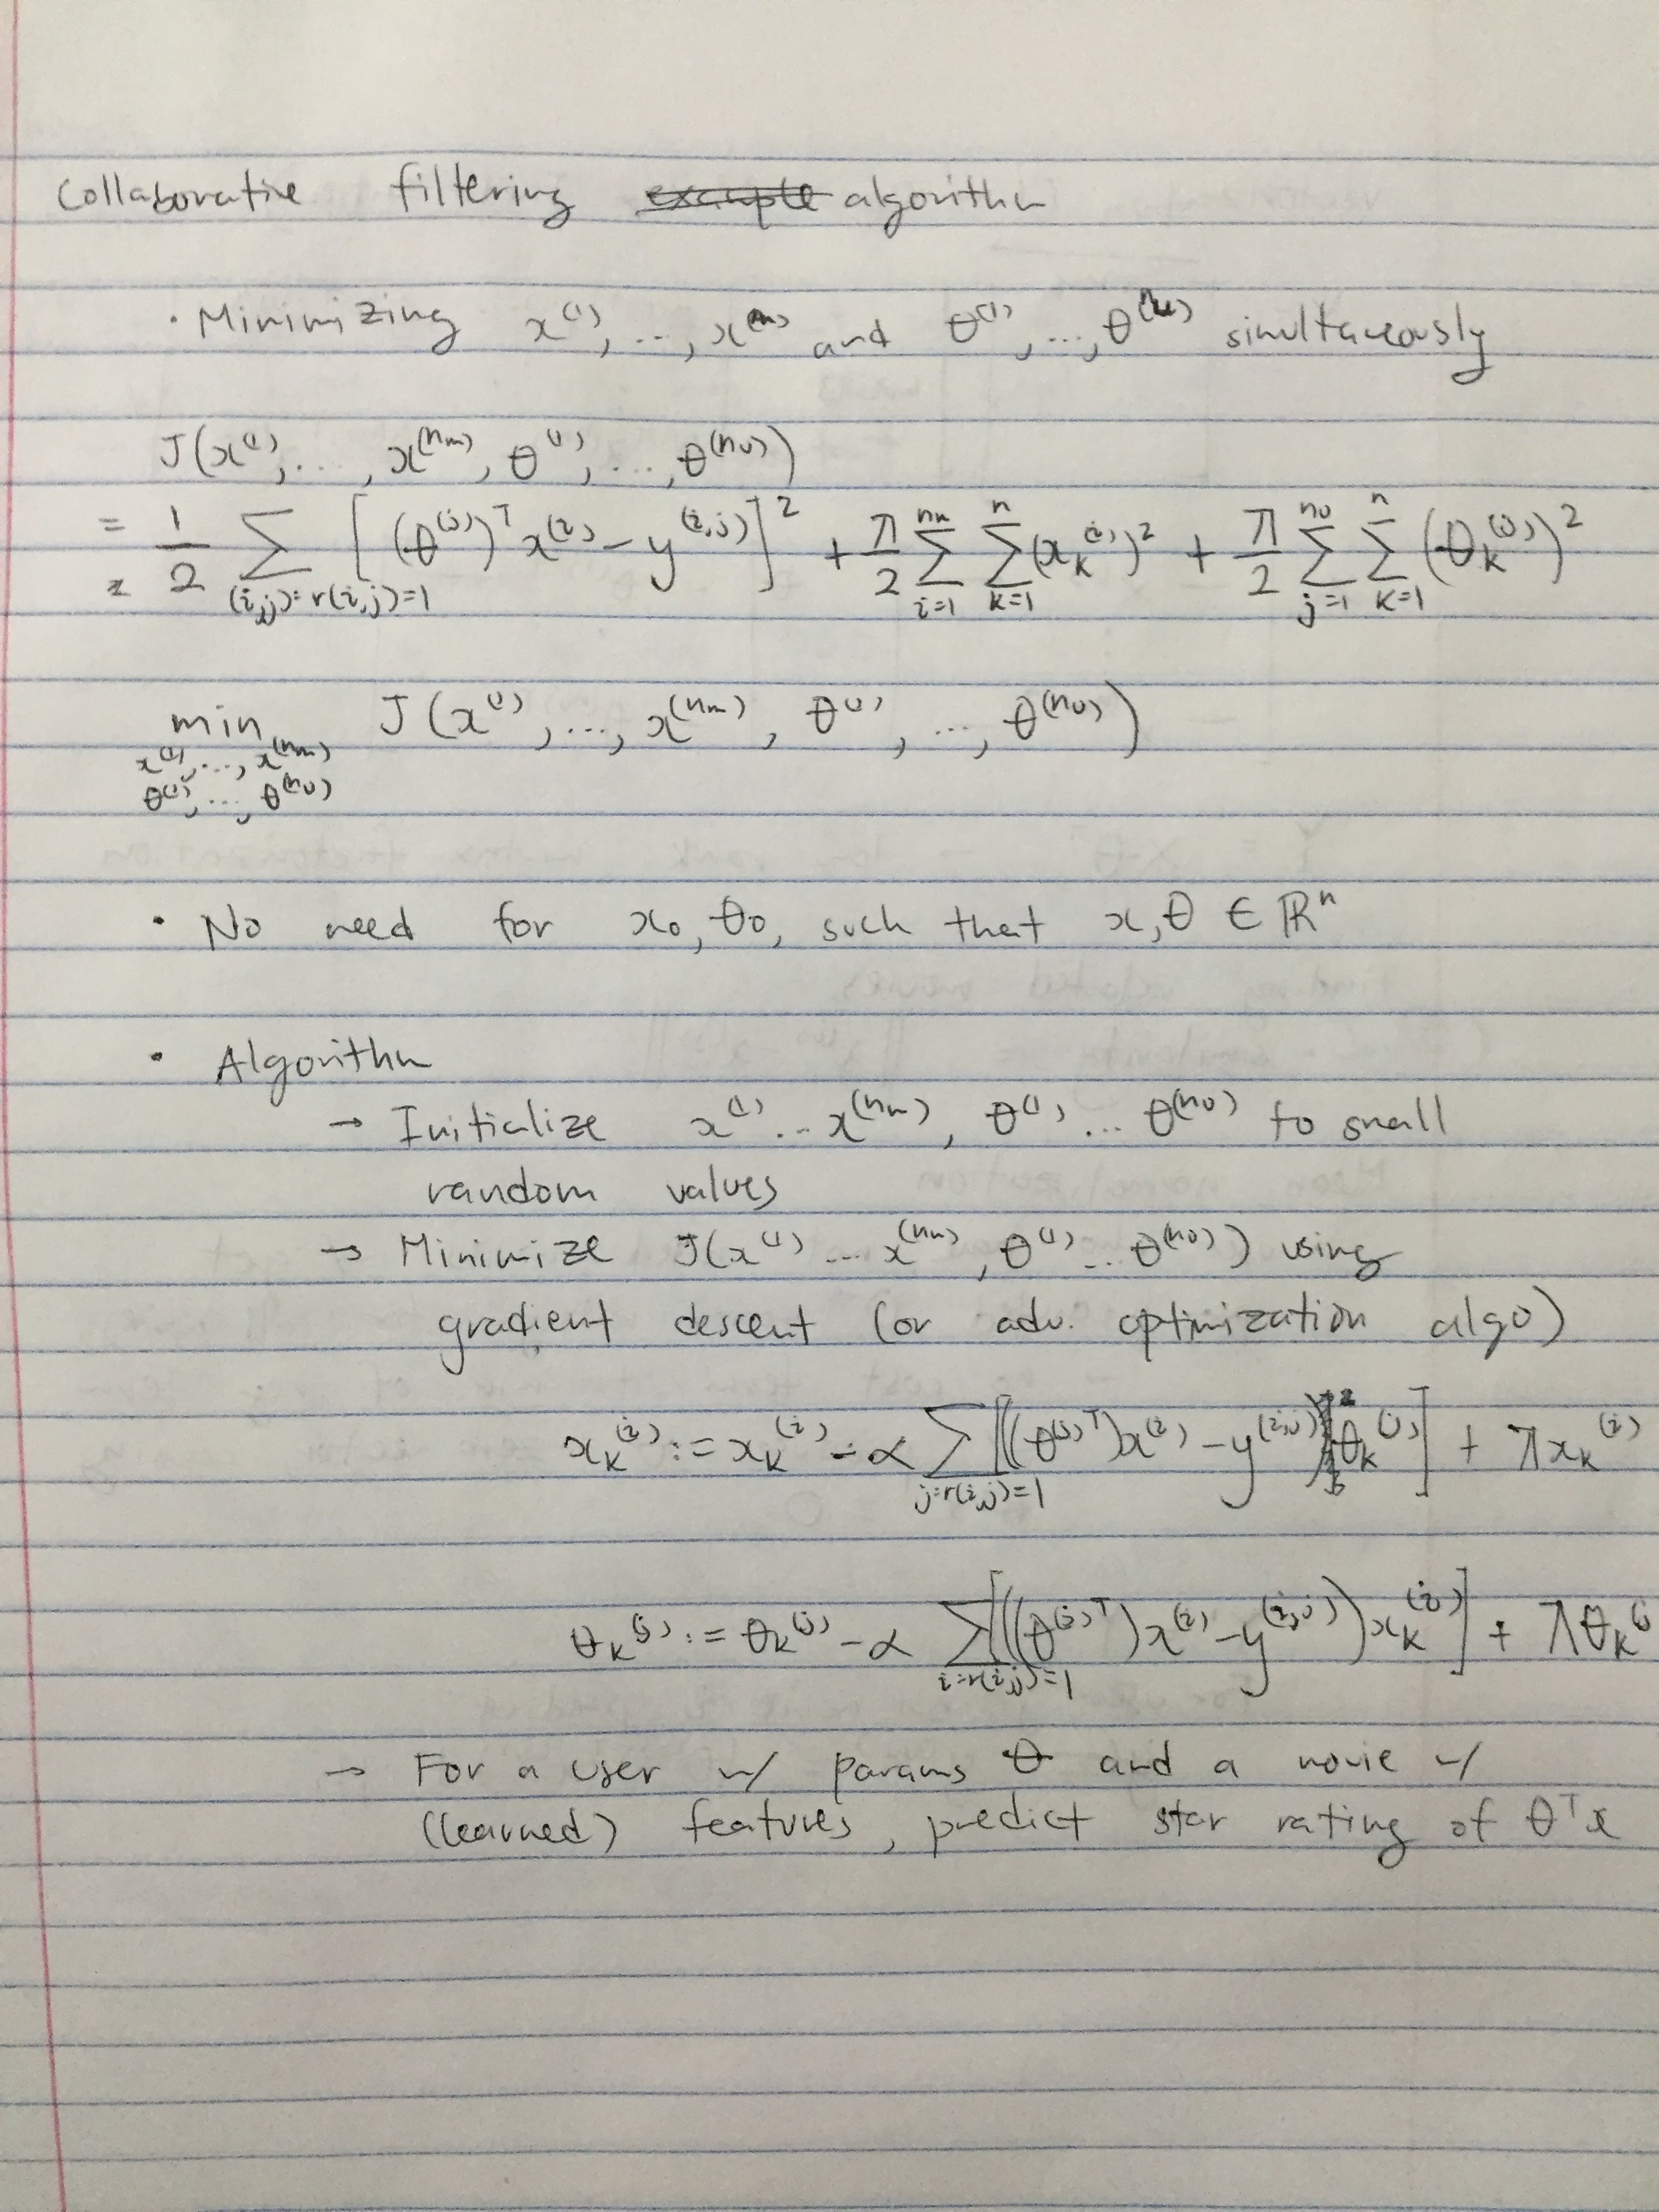 Collaborative filtering ~~example~~ algorithm
· Minimizing x⁽¹⁾, ..., x⁽ⁿᵐ⁾ and θ⁽¹⁾, ..., θ⁽ⁿᵘ⁾ simultaneously
J(x⁽¹⁾, ..., x^(n_m), θ⁽¹⁾, ..., θ^(n_u))
= 1/2 Σ_{(i,j):r(i,j)=1} [(θ^(j))^T x^(i) - y^(i,j)]² + λ/2 Σ_{i=1}^{n_m} Σ_{k=1}^{n} (x_k^(i))² + λ/2 Σ_{j=1}^{n_u} Σ_{k=1}^{n} (θ_k^(j))²
min_{x^(1), ..., x^(n_m), θ^(1), ..., θ^(n_u)} J(x^(1), ..., x^(n_m), θ^(1), ..., θ^(n_u))
· No need for x₀, θ₀, such that x, θ ∈ ℝⁿ
· Algorithm
→ Initialize x^(1) ... x^(n_m), θ^(1) ... θ^(n_u) to small
random values
→ Minimize J(x^(1) ... x^(n_m), θ^(1) ... θ^(n_u)) using
gradient descent (or adv. optimization algo)
x_k^(i) := x_k^(i) - α Σ_{j:r(i,j)=1} [((θ^(j)T)x^(i) - y^(i,j))θ_k^(j)] + λx_k^(i)
θ_k^(j) := θ_k^(j) - α Σ_{i:r(i,j)=1} [((θ^(j)T)x^(i) - y^(i,j))x_k^(i)] + λθ_k^(j
→ For a user w/ params θ and a movie w/
(learned) features, predict star rating of θ^T x